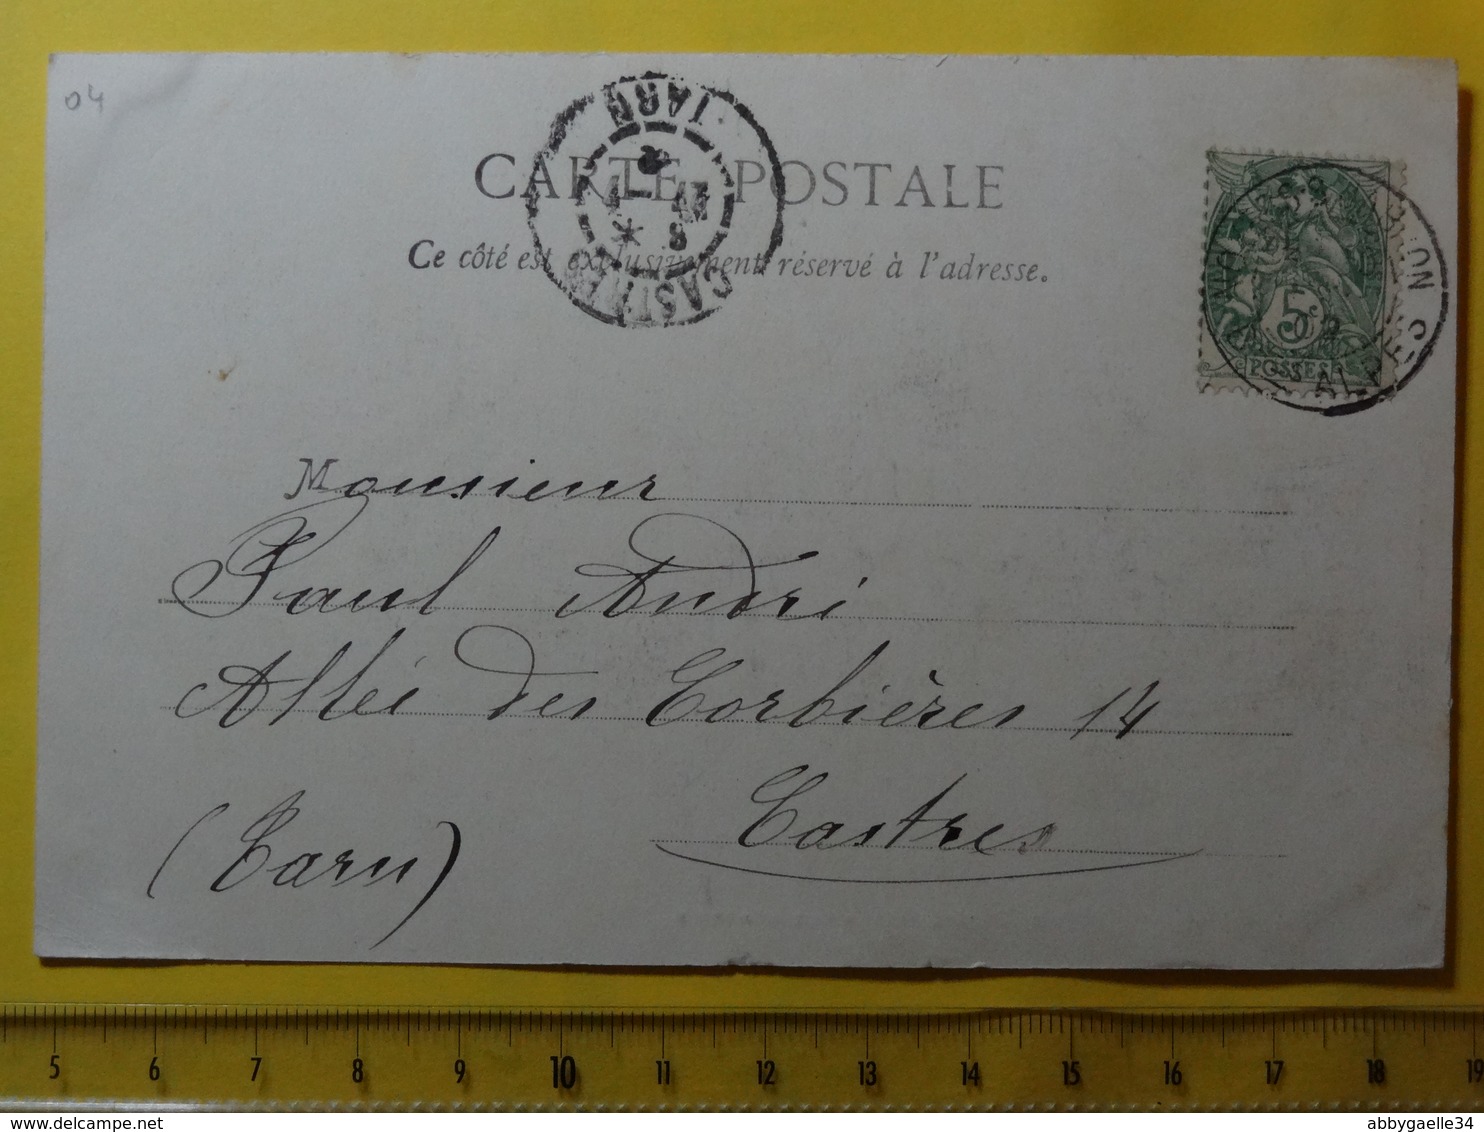 04
CARTE POSTALE
Ce côté est exclusivement réservé à l'adresse.
TARN
CASTRES
5c
POSTES
NOYERS-S-JABRON
ALPES
Monsieur
Paul André
Allée des Corbières 14
Castres
(Tarn)
5 6 7 8 9 10 11 12 13 14 15 16 17 18 19
delcampe.net
abbygaelle34